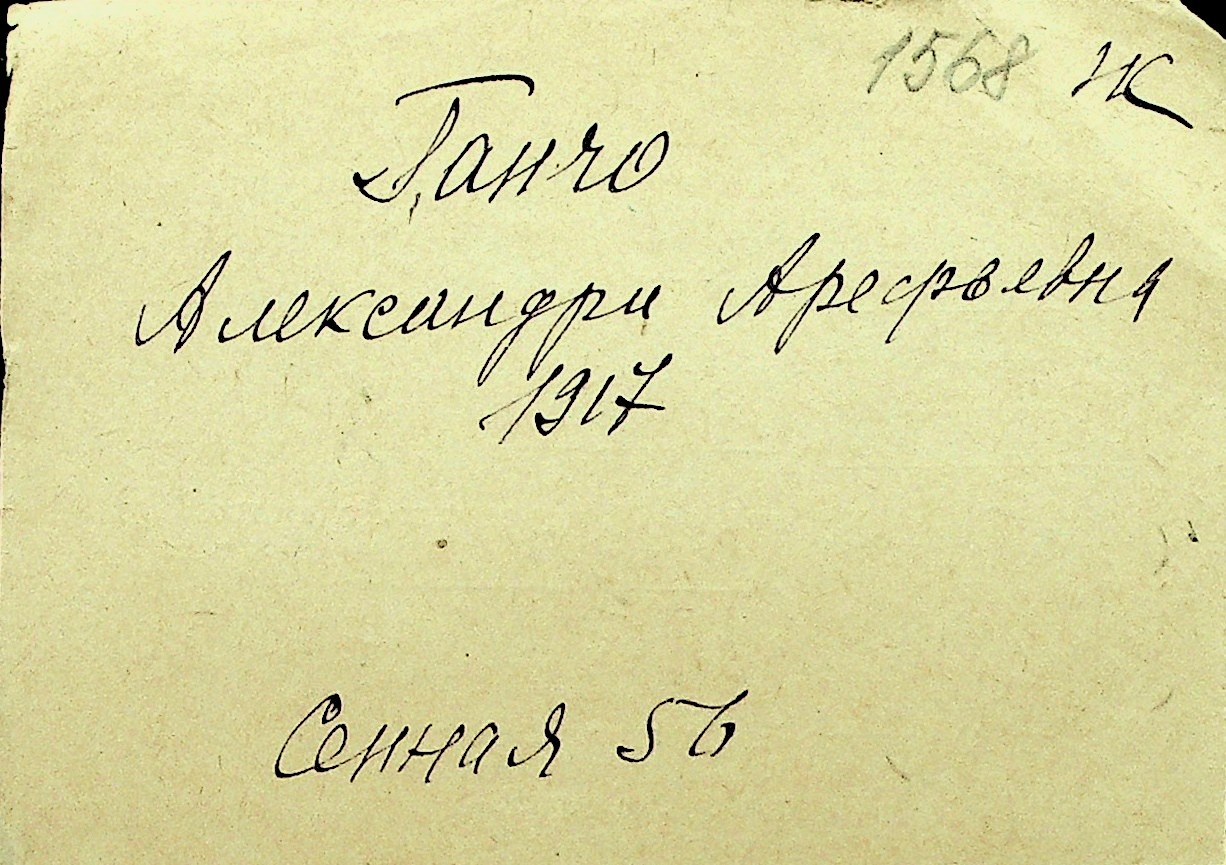 1568 Ж
Ганчо
Александра Арефьевна
1917
Сенная 56